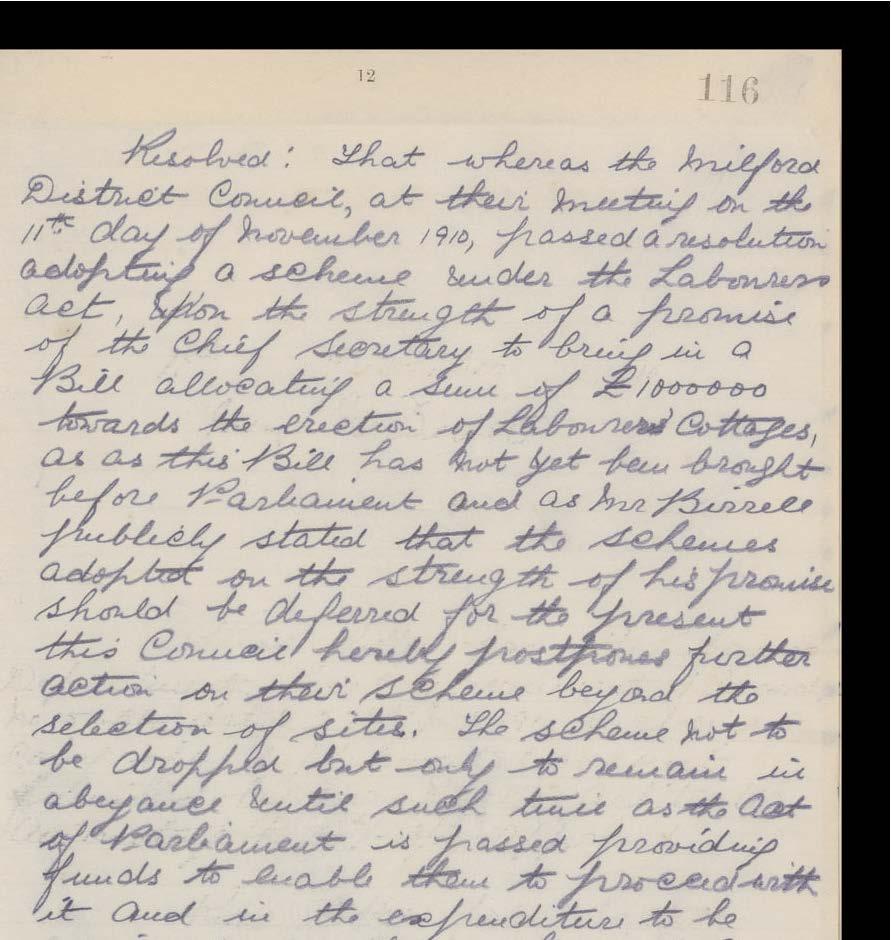 12
116
Resolved: That whereas the Milford
District Council, at their Meeting on the
11th day of November 1910, passed a resolution
adopting a scheme under the Labourers
Act, upon the strength of a promise
of the Chief Secretary to bring in a
Bill allocating a sum of £1000000
towards the erection of Labourers' Cottages,
as as this Bill has not yet been brought
before Parliament and as Mr Birrell
publicly stated that the schemes
adopted on the strength of his promise
should be deferred for the present
this Council hereby postpones further
action on their scheme beyond the
selection of sites. The scheme not to
be dropped but only to remain in
abeyance until such time as the Act
of Parliament is passed providing
funds to enable them to proceed with
it and in the expenditure to be